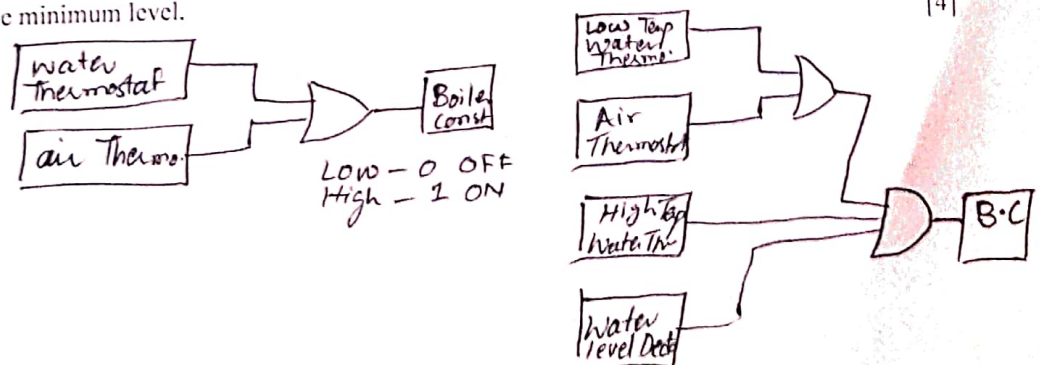 e minimum level.
[4]
water
Thermostat
air Thermo.
Boiler
const
Low - 0 OFF
High - 1 ON
Low Temp
Water
Thermo.
Air
Thermostat
High Temp
Water Thr
Water
level Dect
B.C